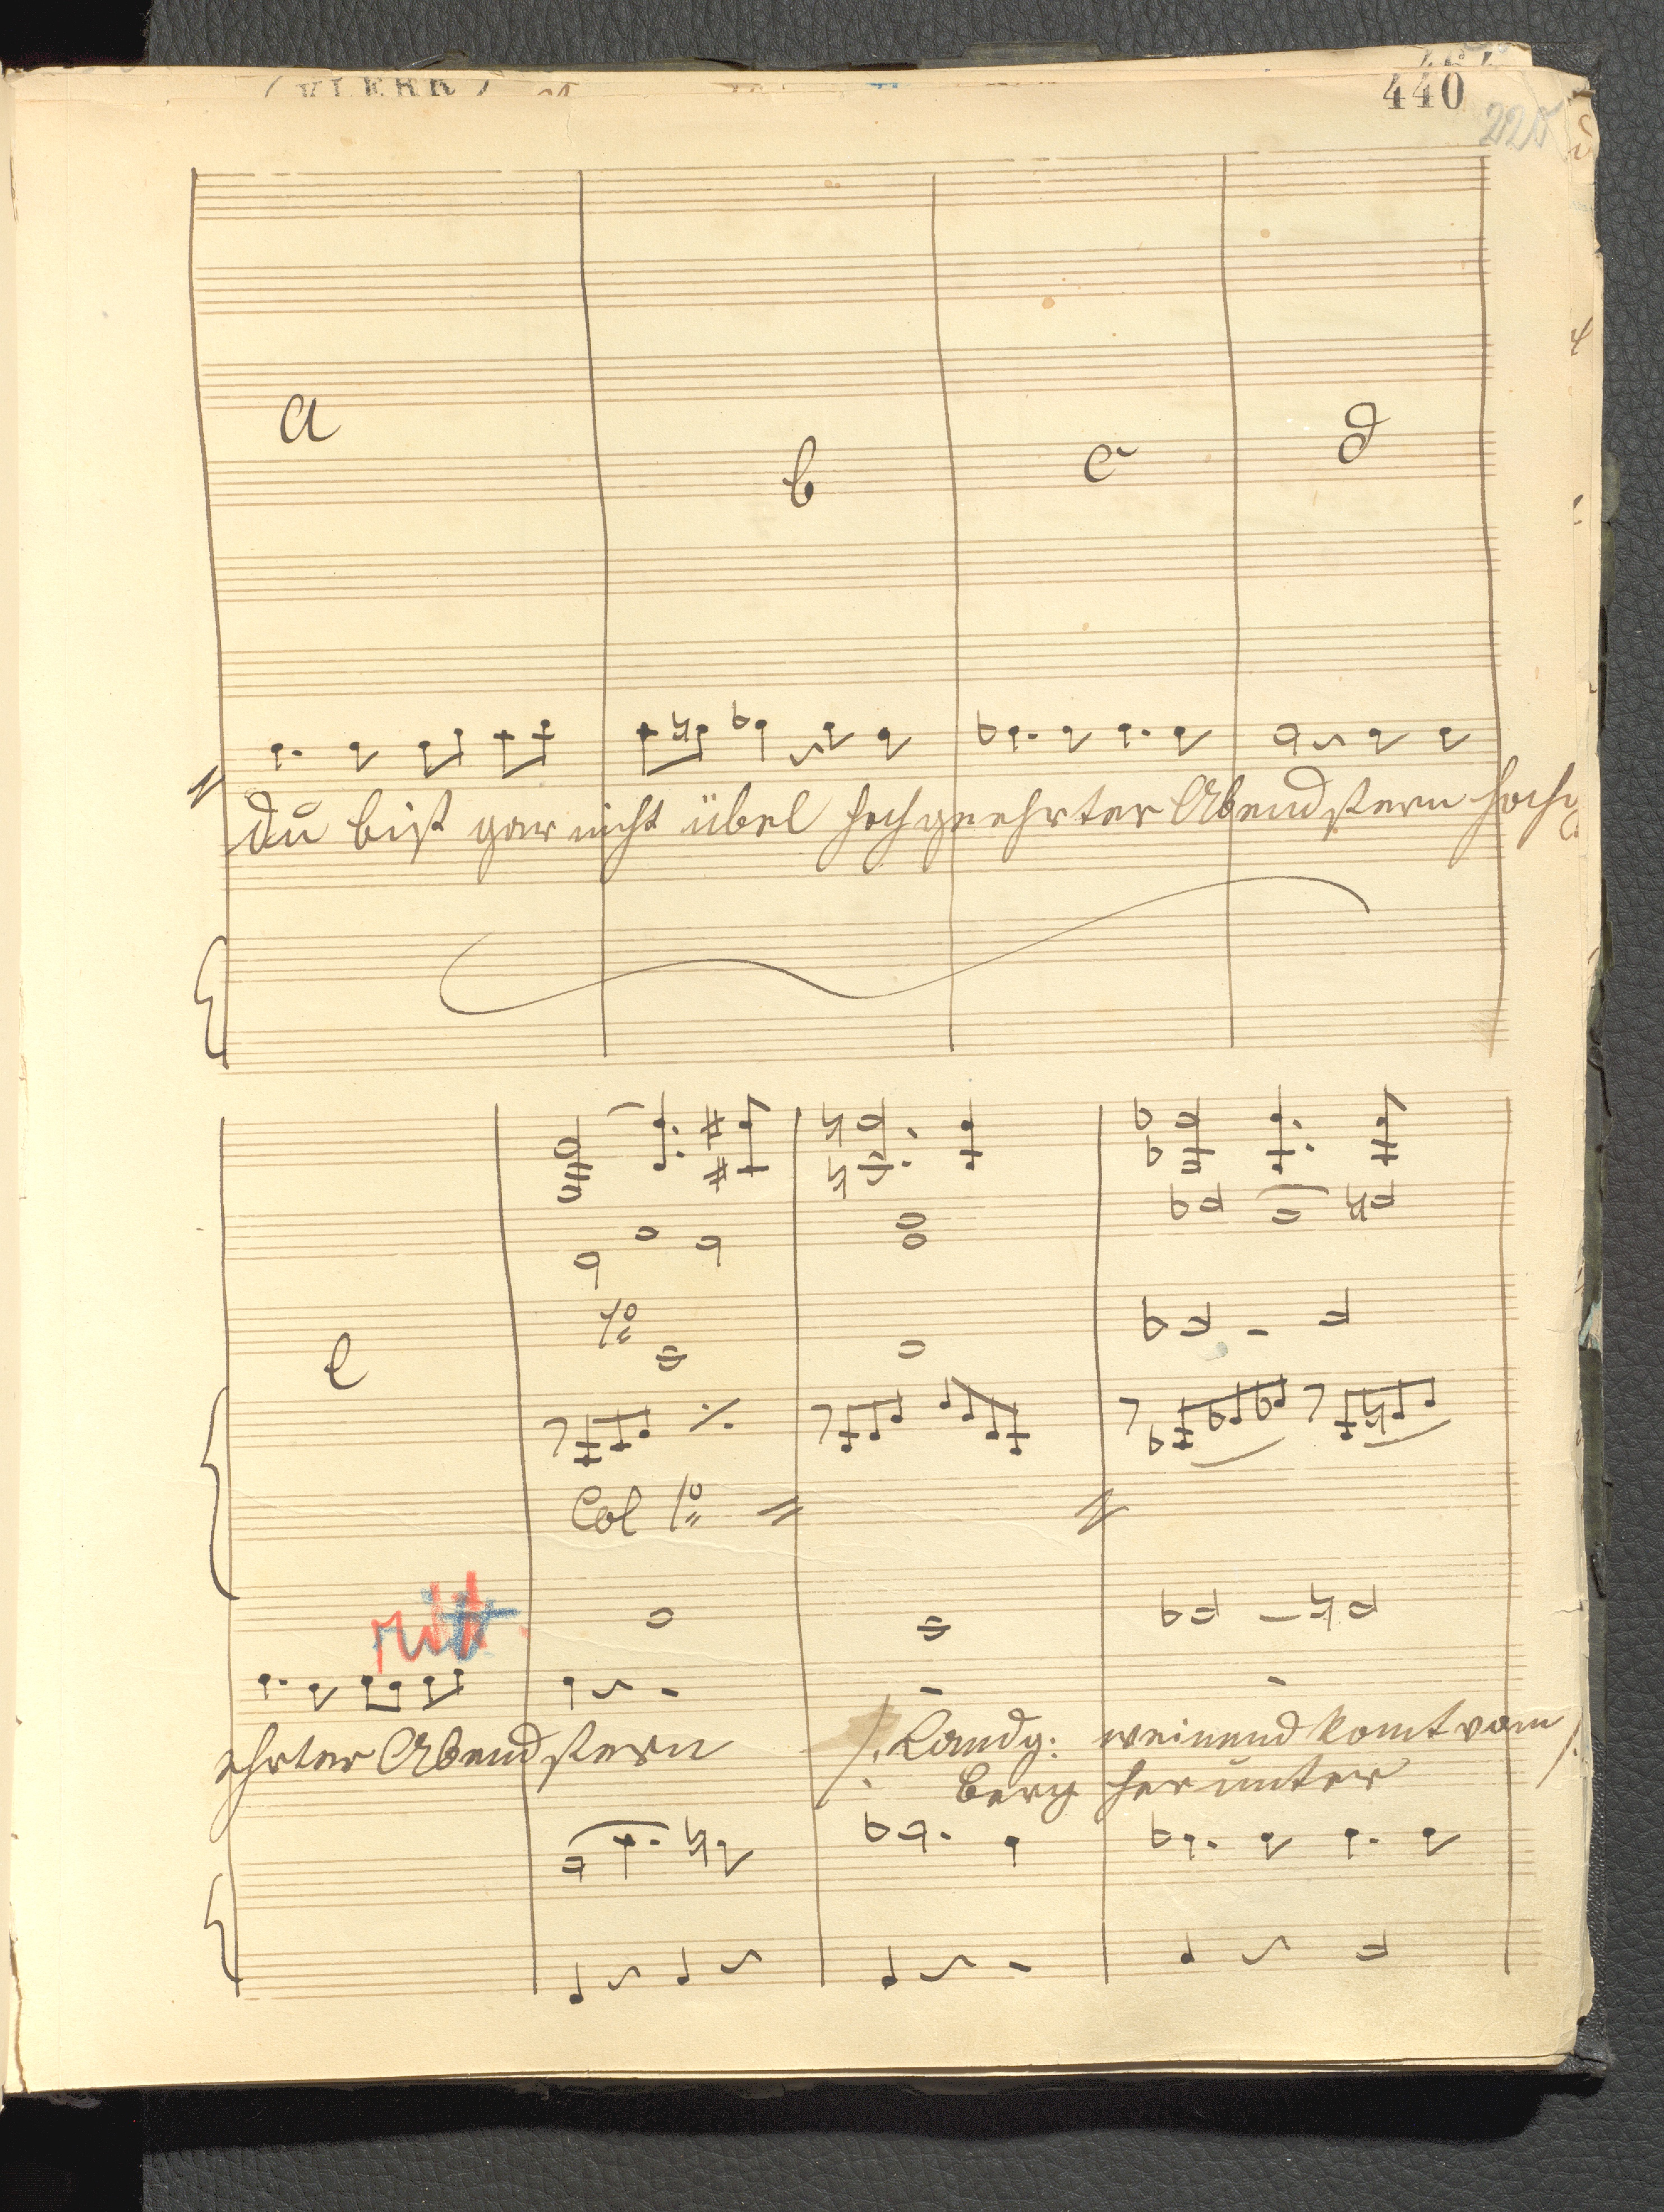 440
225
a b c d
du bist gar nicht übel hochgeehrter Abendstern hoch
1º
e
Col 1º
ritt.
ehrter Abendstern /: Landg: weinend komt vom
berg herunter :/